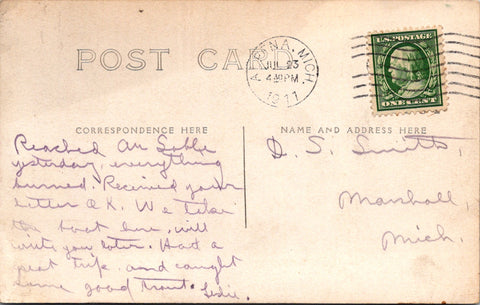 POST CARD
ALPENA, MICH.
JUL 23
4 PM
1911
U.S. POSTAGE
ONE CENT
CORRESPONDENCE HERE
NAME AND ADDRESS HERE
Reached Au Sable
yesterday, everything
burned. Received your
letter O.K. We take
the boat here, will
write you later. Had a
great trip and caught
some good trout.
D. S. Smith,
Marshall,
Mich.